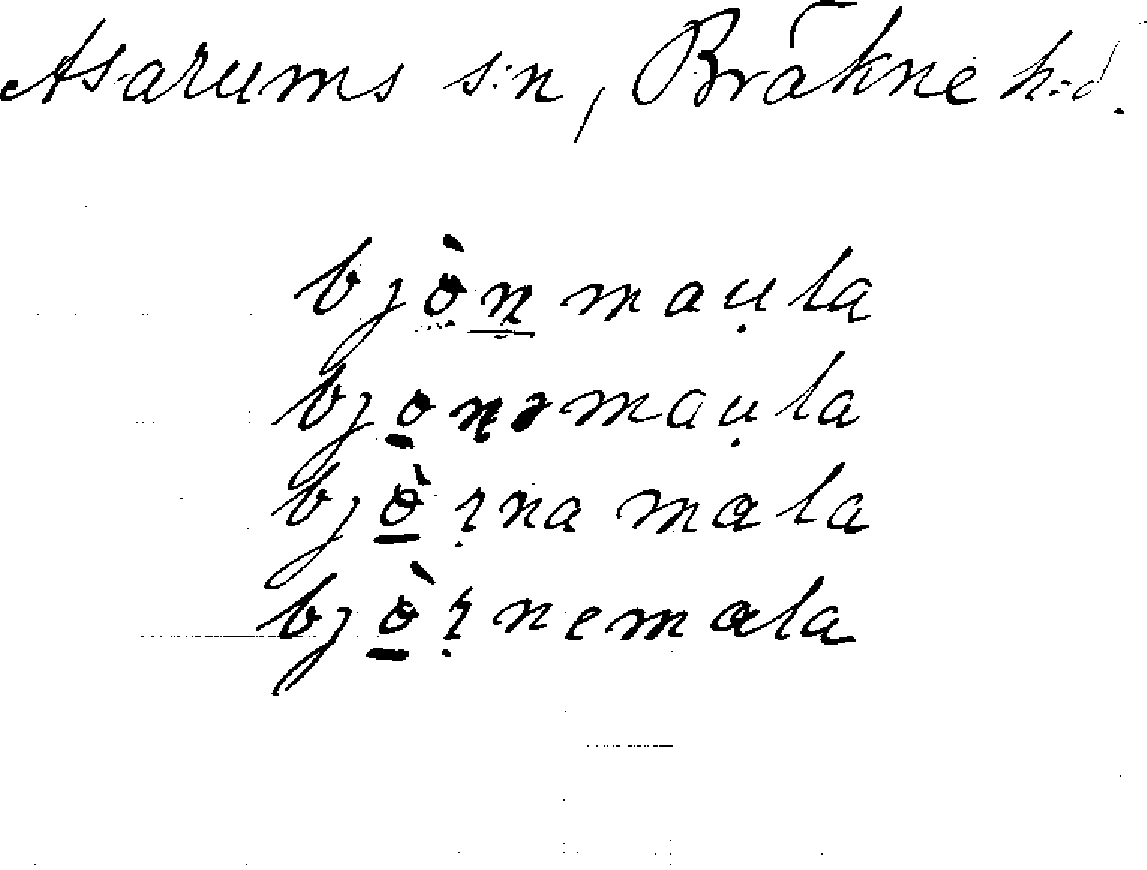 Asarums s:n, Bräkne h:d.
bjò̤ṉmaụla
bjo̱nəmaụla
bjò̱ṛna mala
bjò̱ṛnemala